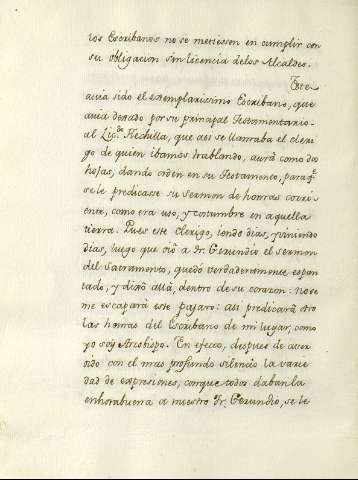 los Escribanos no se metiessen en cumplir con
su obligacion sin licencia delos Alcaldes.
Este
avia sido el exemplarissimo Escribano, que
avia dexado por su principal Testamentario
al Lic.do Flechilla, que assi se llamaba el cleri
go de quien ibamos hablando, aurà como dos
hojas, dando orden en su Testamento, para q.e
se le predicasse su sermon de honras corri
ente, como era uso, y costumbre en aquella
tierra. Pues este clerigo, iendo dias, y viniendo
dias, luego que oiò a Fr. Gerundio el sermon
del Sacramento, quedò verdaderamente espan
tado, y dixo allà, dentro de su corazon: No se
me escaparà este pajaro: assi predicarà otro
las honras del Escribano de mi lugar, como
yo soy Arzobispo. En efecto, despues de aver
oido con el mas profundo silencio la varie
dad de expresiones, conque todos daban la
enhorabuena a nuestro Fr. Gerundio, se le